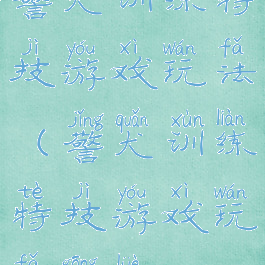 警犬训练特
jì yóu xì wán fǎ
技游戏玩法
jǐng quǎn xùn liàn
(警犬训练
tè jì yóu xì wán
特技游戏玩
fǎ gōng lüè